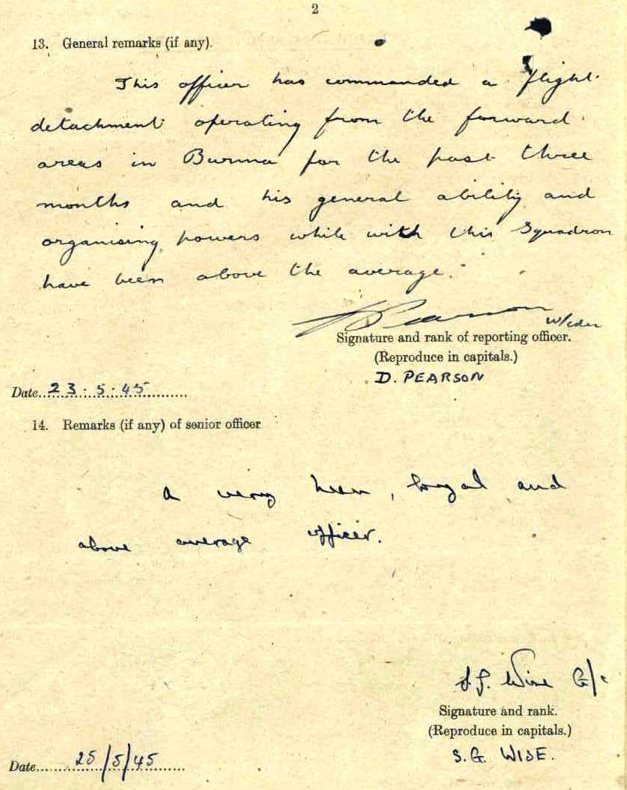 2
13. General remarks (if any).
This officer has commanded a flight
detachment operating from the forward
areas in Burma for the past three
months and his general ability and
organising powers while with this Squadron
have been above the average.
D Pearson W/cdr
Signature and rank of reporting officer.
(Reproduce in capitals.)
D. PEARSON
Date 23.5.45
14. Remarks (if any) of senior officer
A very keen, loyal and
above average officer.
S.G. Wise G/c
Signature and rank.
(Reproduce in capitals.)
S.G. WISE.
Date 25/5/45